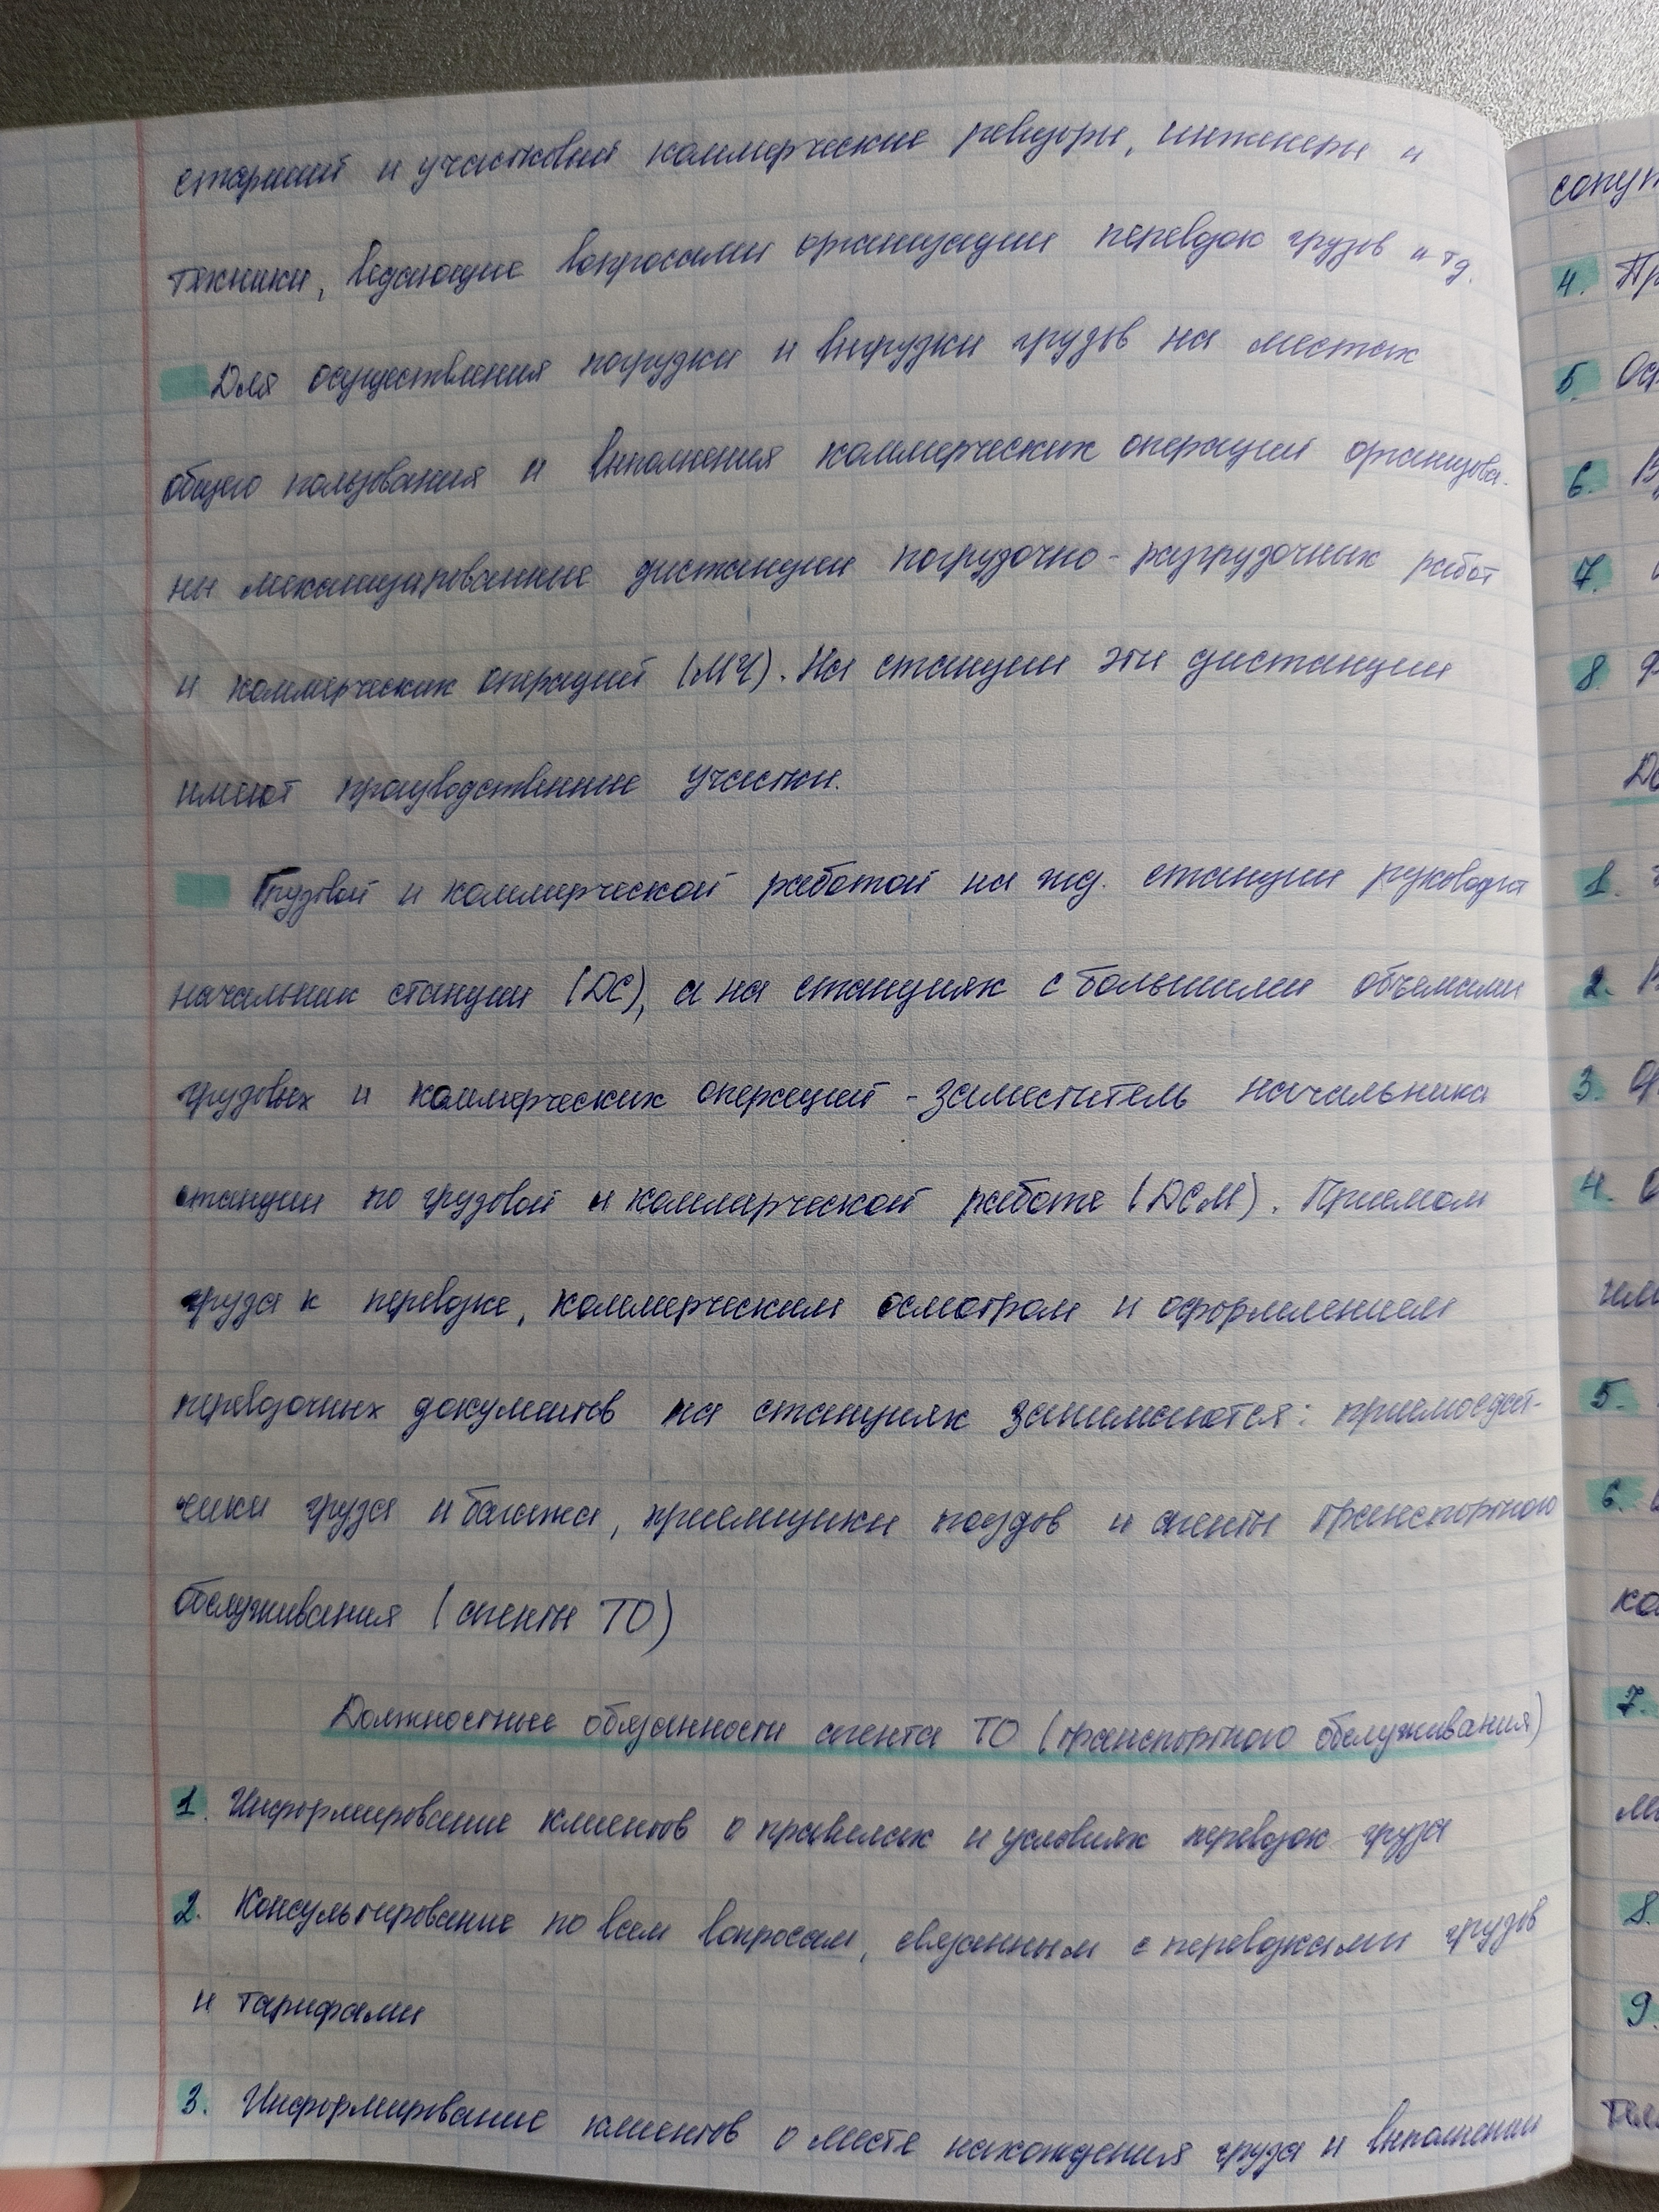 старший и участковый коммерческие ревизоры, инженеры и
техники, ведающие вопросами организации перевозок грузов и тд.
Для осуществления погрузки и выгрузки грузов на местах
общего пользования и выполнения коммерческих операций организова-
ны механизированные дистанции погрузочно-разгрузочных работ
и коммерческих операций (МЧ). На станции эти дистанции
имеют производственные участки.
Грузовой и коммерческой работой на жд. станции руководит
начальник станции (ДС), а на станциях с большими объемами
грузовых и коммерческих операций - заместитель начальника
станции по грузовой и коммерческой работе (ДСМ). Приемом
груза к перевозке, коммерческим осмотром и оформлением
перевозочных документов на станциях занимаются: приемосдат-
чики груза и багажа, приемщики поездов и агенты транспортного
обслуживания (агенты ТО)
Должностные обязанности агента ТО (транспортного обслуживания)
1. Информирование клиентов о правилах и условиях перевозок груза
2. Консультирование по всем вопросам, связанным с перевозками грузов
и тарифами
3. Информирование клиентов о месте нахождения груза и выполнении
4.
5.
6.
7.
8.
1.
2.
3.
4.
5.
6.
7.
8.
9.